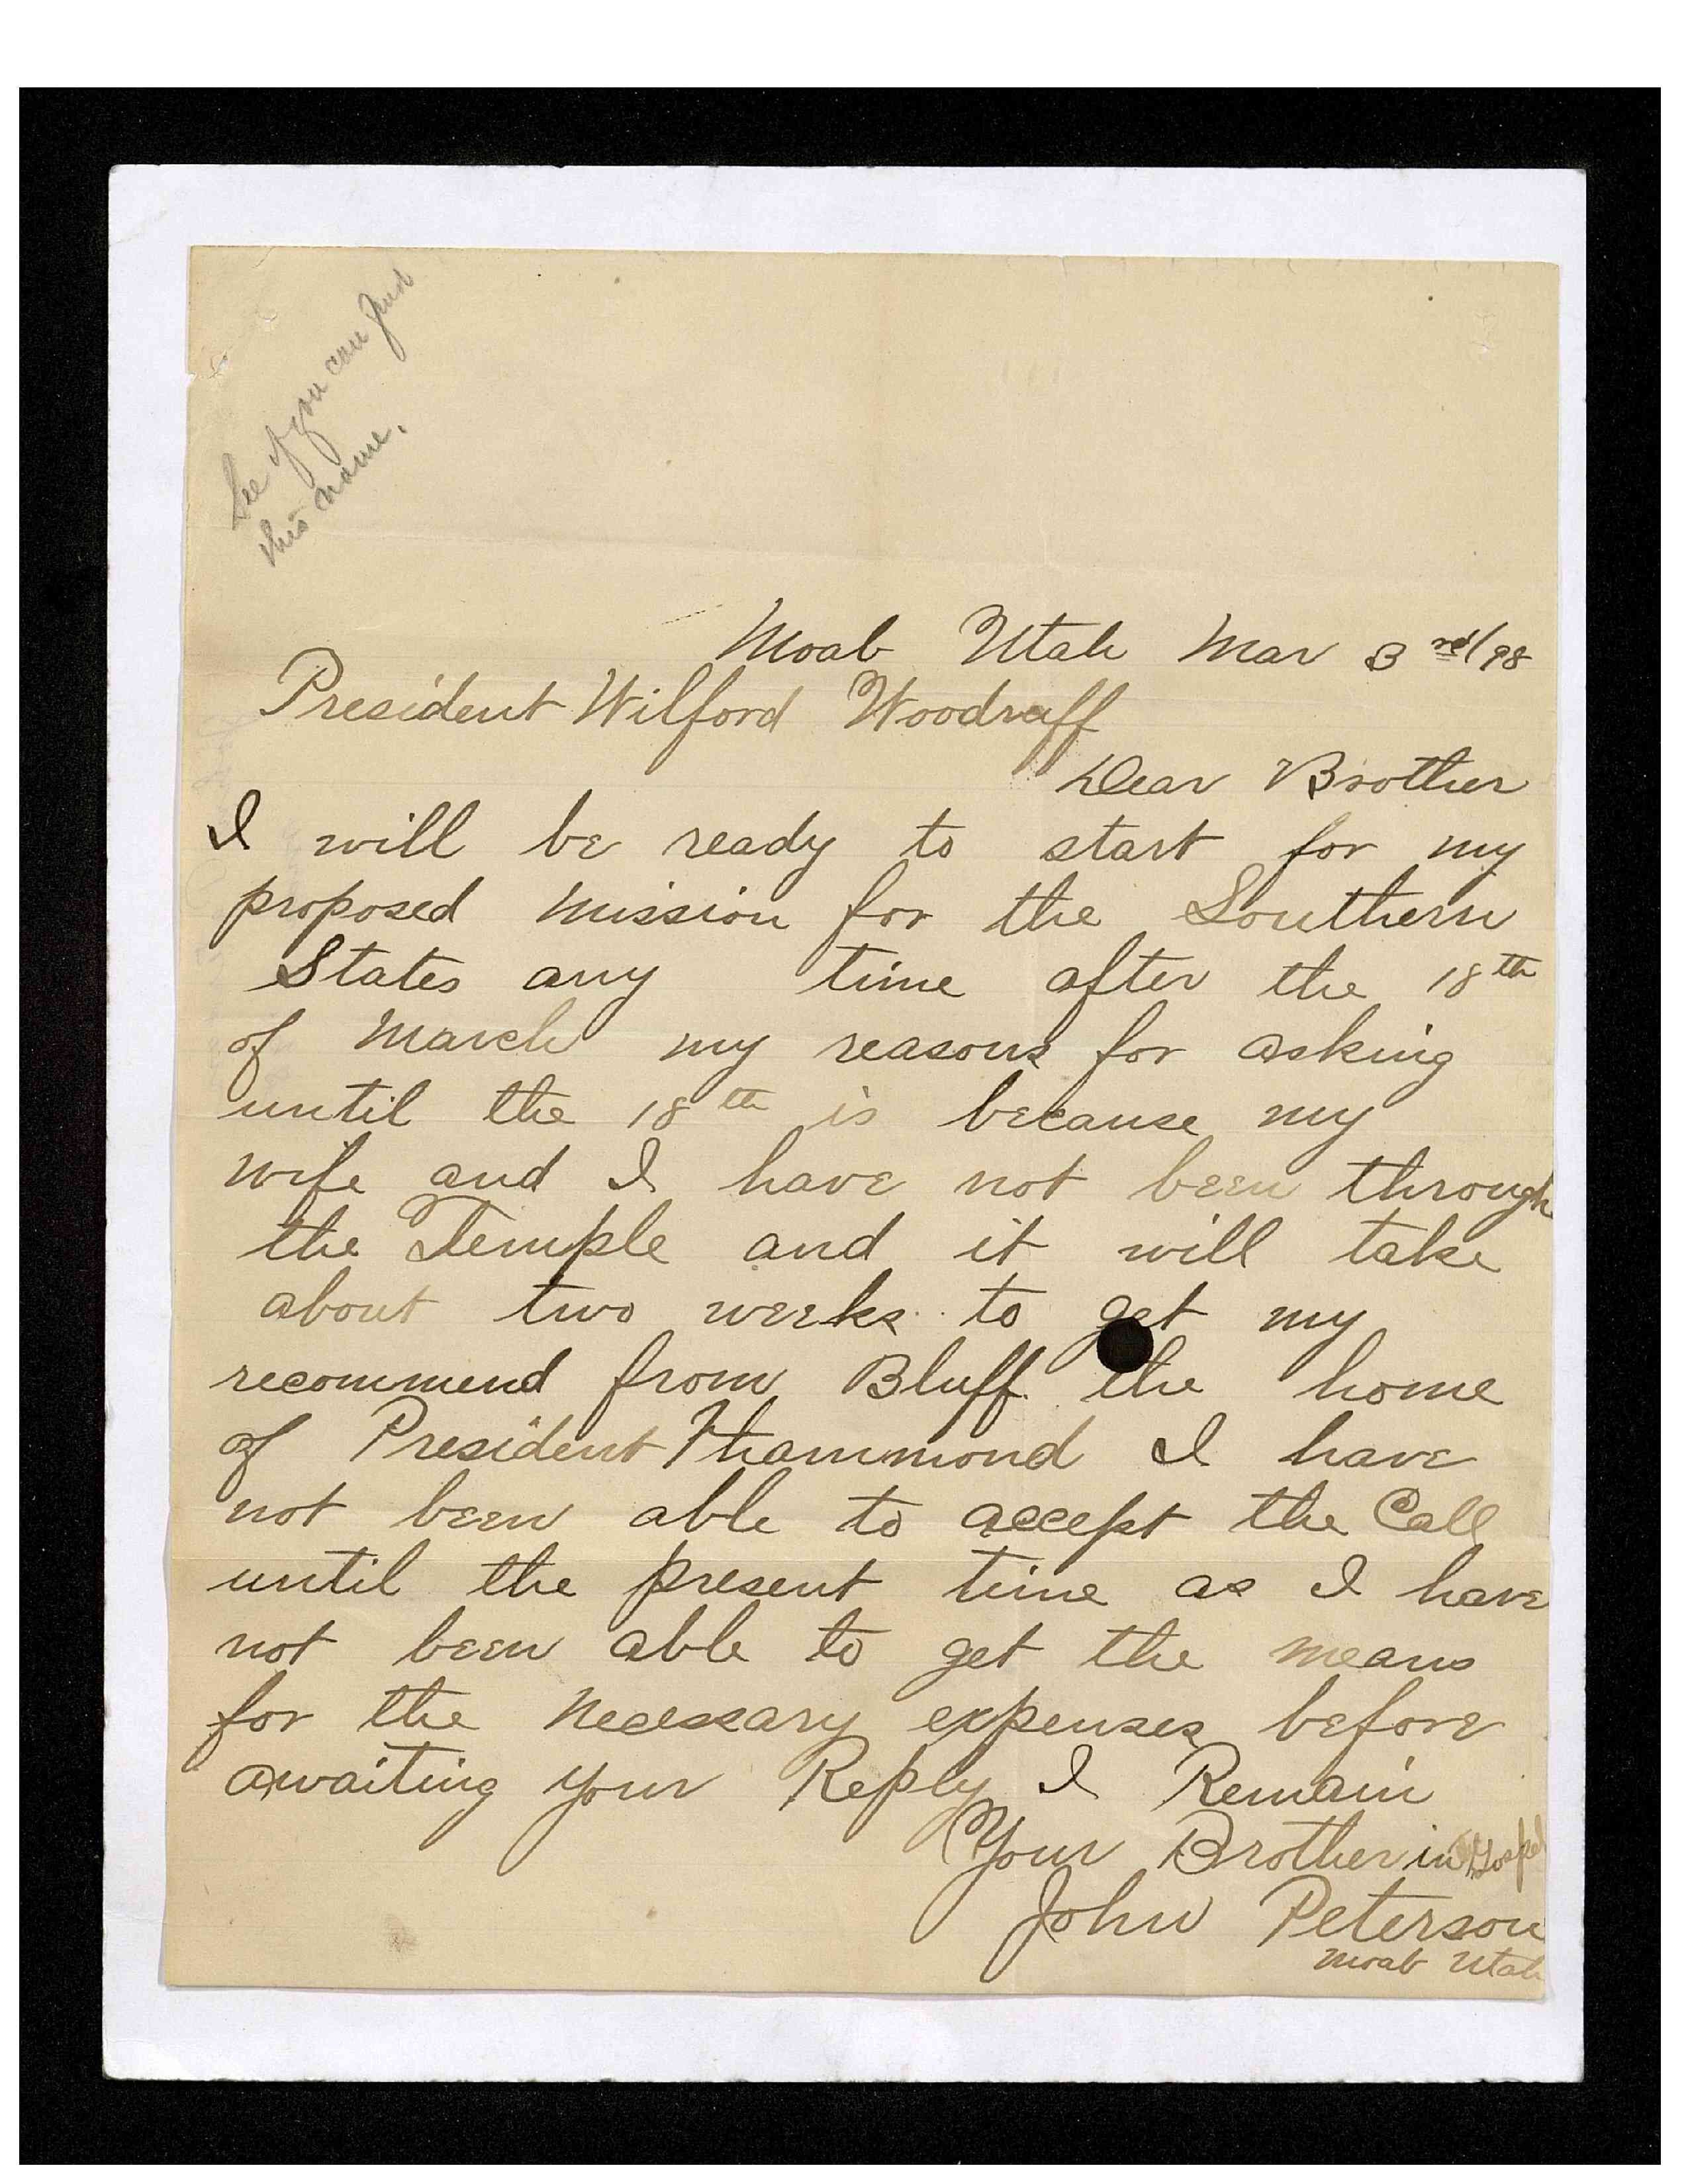 See if you can find
this name.
Moab Utah Mar 3rd/98
President Wilford Woodruff
Dear Brother
I will be ready to start for my
proposed mission for the Southern
States any time after the 18th
of March my reasons for asking
until the 18th is because my
wife and I have not been through
the Temple and it will take
about two weeks to get my
recommend from Bluff the home
of President Hammond I have
not been able to accept the Call
until the present time as I have
not been able to get the means
for the necessary expenses before
awaiting your Reply I Remain
Your Brother in Gospel
John Peterson
Moab Utah